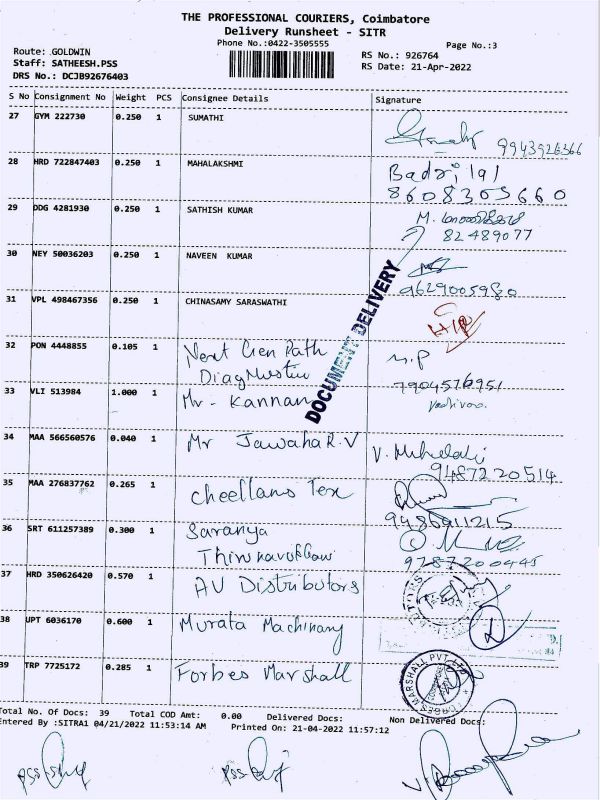 THE PROFESSIONAL COURIERS, Coimbatore
Delivery Runsheet - SITR
Phone No.:0422-3505555
Page No.:3
Route: .GOLDWIN
Staff: SATHEESH.PSS
DRS No.: DCJB92676403
RS No.: 926764
RS Date: 21-Apr-2022
S No Consignment No Weight PCS Consignee Details Signature
27 GYM 222730 0.250 1 SUMATHI
9943926366
28 HRD 722847403 0.250 1 MAHALAKSHMI Badrilal
8608305660
29 DDG 4281930 0.250 1 SATHISH KUMAR M.
82489077
30 NEY 50036203 0.250 1 NAVEEN KUMAR
9629005980
31 VPL 498467356 0.250 1 CHINASAMY SARASWATHI
DOCUMENT DELIVERY
32 PON 4448855 0.105 1 Next Gen Path
Diagnostic
7904576951
33 VLI 513984 1.000 1 Mr - Kannan
34 MAA 566560576 0.040 1 Mr Jawahar.V V.
9487220514
35 MAA 276837762 0.265 1 Cheellams Tex
9486911215
36 SRT 611257389 0.300 1 Saranya
9787200445
37 HRD 350626420 0.570 1 AV Distributors
38 UPT 6036170 0.600 1 Murata Machinary
39 TRP 7725172 0.285 1 Forbes Marshall
FORBES MARSHALL PVT LTD
Total No. Of Docs: 39 Total COD Amt: 0.00 Delivered Docs: Non Delivered Docs:
Entered By :SITRA1 04/21/2022 11:53:14 AM Printed On: 21-04-2022 11:57:12